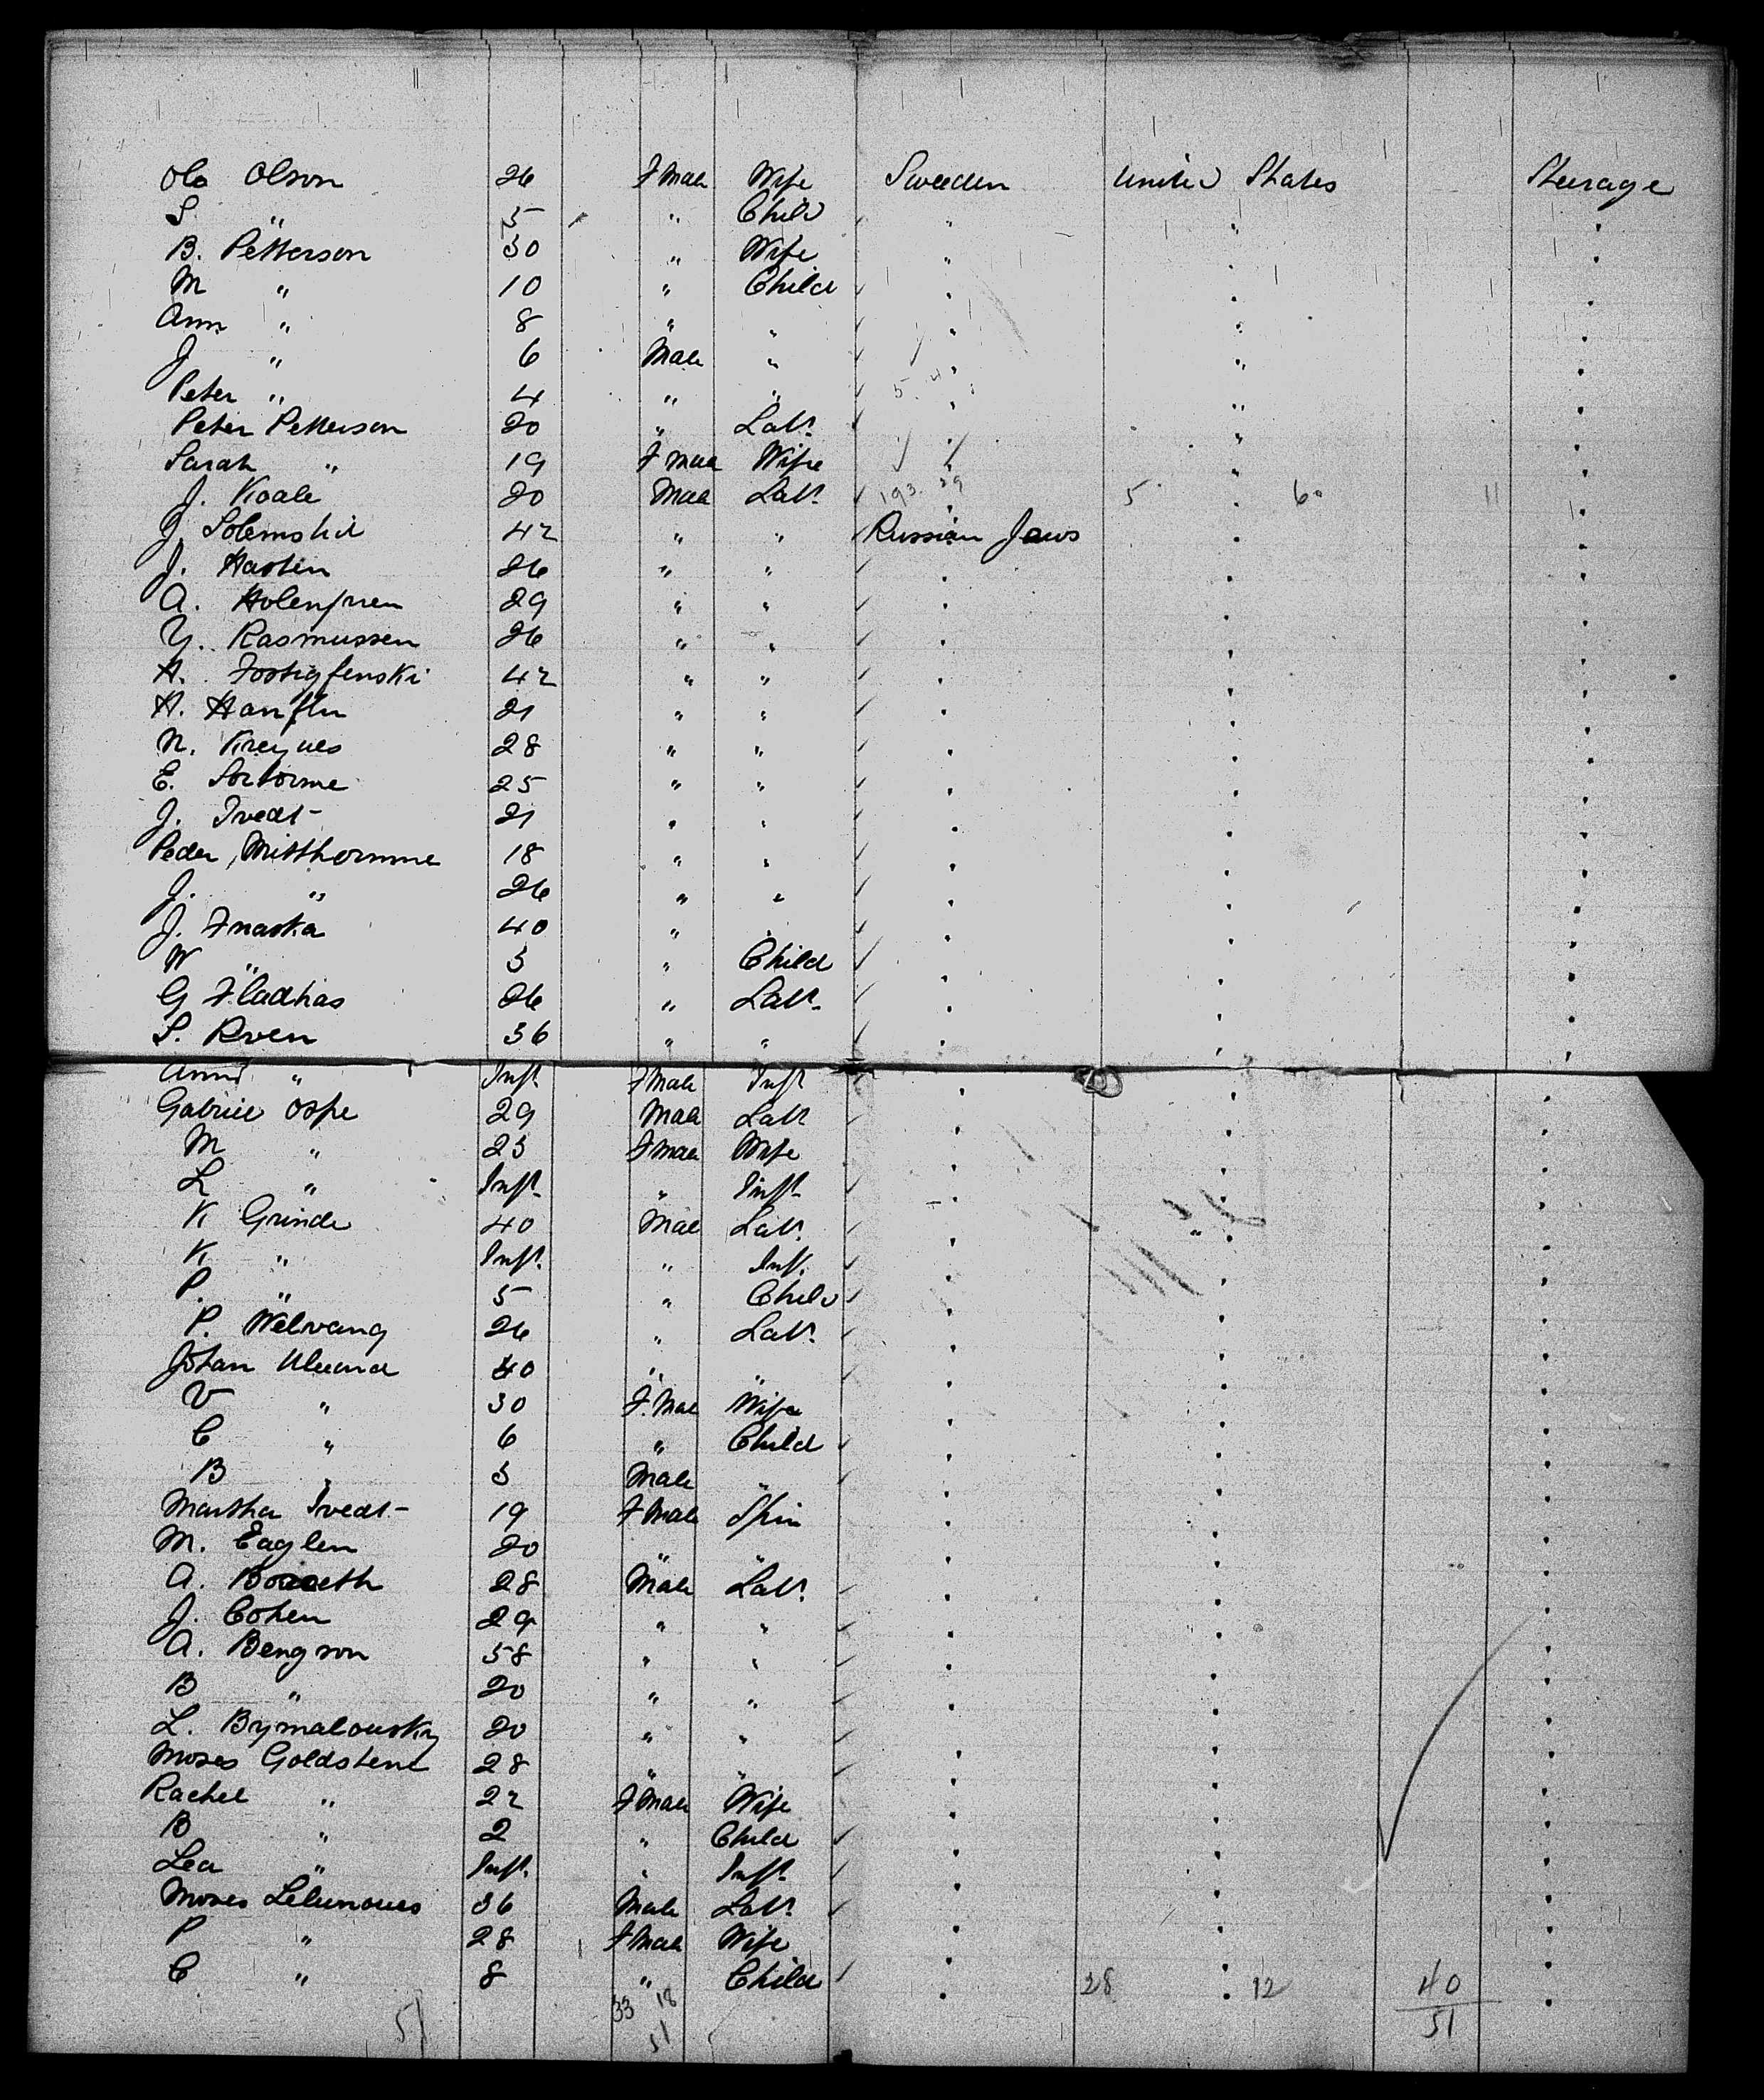 Ola Olson 26 Fmale Wife Sweden United States Steerage
S " 5 " Child " " "
B. Petterson 30 " Wife " " "
M " 10 " Child " " "
Ann " 8 " " " " "
J " 6 Male " " " "
Peter " 4 " " " " "
Peter Petterson 20 " Labr. " " "
Sarah " 19 Fmale Wife " " "
J. Koale 20 Male Labr. 193. 29 5 " 6 11 "
J. Solemshil 42 " " Russian Jews " "
J. Hasten 26 " " " " "
A. 29 " " " " "
Y. Rasmussen 26 " " " " "
H. 42 " " " " "
H. 21 " " " " "
N. 28 " " " " "
E. 25 " " " " "
J. Tvedt 21 " " " " "
Peder Mitthomme 18 " " " " "
J. " 26 " " " " "
J. Fnaska 40 " " " " "
W " 3 " Child " " "
G Fladhas 26 " Labr. " " "
S. Rven 36 " " " " "
Anna " Inft. Fmale Inft " " "
Gabriel Ospe 29 Male Labr " " "
M " 23 Fmale Wife " " "
L " Inft. " Inft. " " "
K Grinde 40 Male Labr. " " "
K " Inft. " Inft. " " "
P. " 5 " Child " " "
P. Welvang 26 " Labr. " " "
Johan 40 " " " " "
V " 30 F.Male Wife " " "
C " 6 " Child " " "
B " 3 Male " " " "
Martha Tvedt 19 Fmale Spin " " "
M. Eaglen 20 " " " " "
A. 28 Male Labr. " " "
J. Cohen 29 " " " " "
A. Bengson 58 " " " " "
B " 20 " " " " "
L. Brymalousky 20 " " " " "
Moses Goldstene 28 " " " " "
Rachel " 22 Fmale Wife " " "
B " 2 " Child " " "
Lea " Inft. " Inft. " " "
Moses 36 Male Labr. " " "
P " 28 Fmale Wife " " "
C " 8 " Child " 28 " 12 40 "
51 33 18 51
51